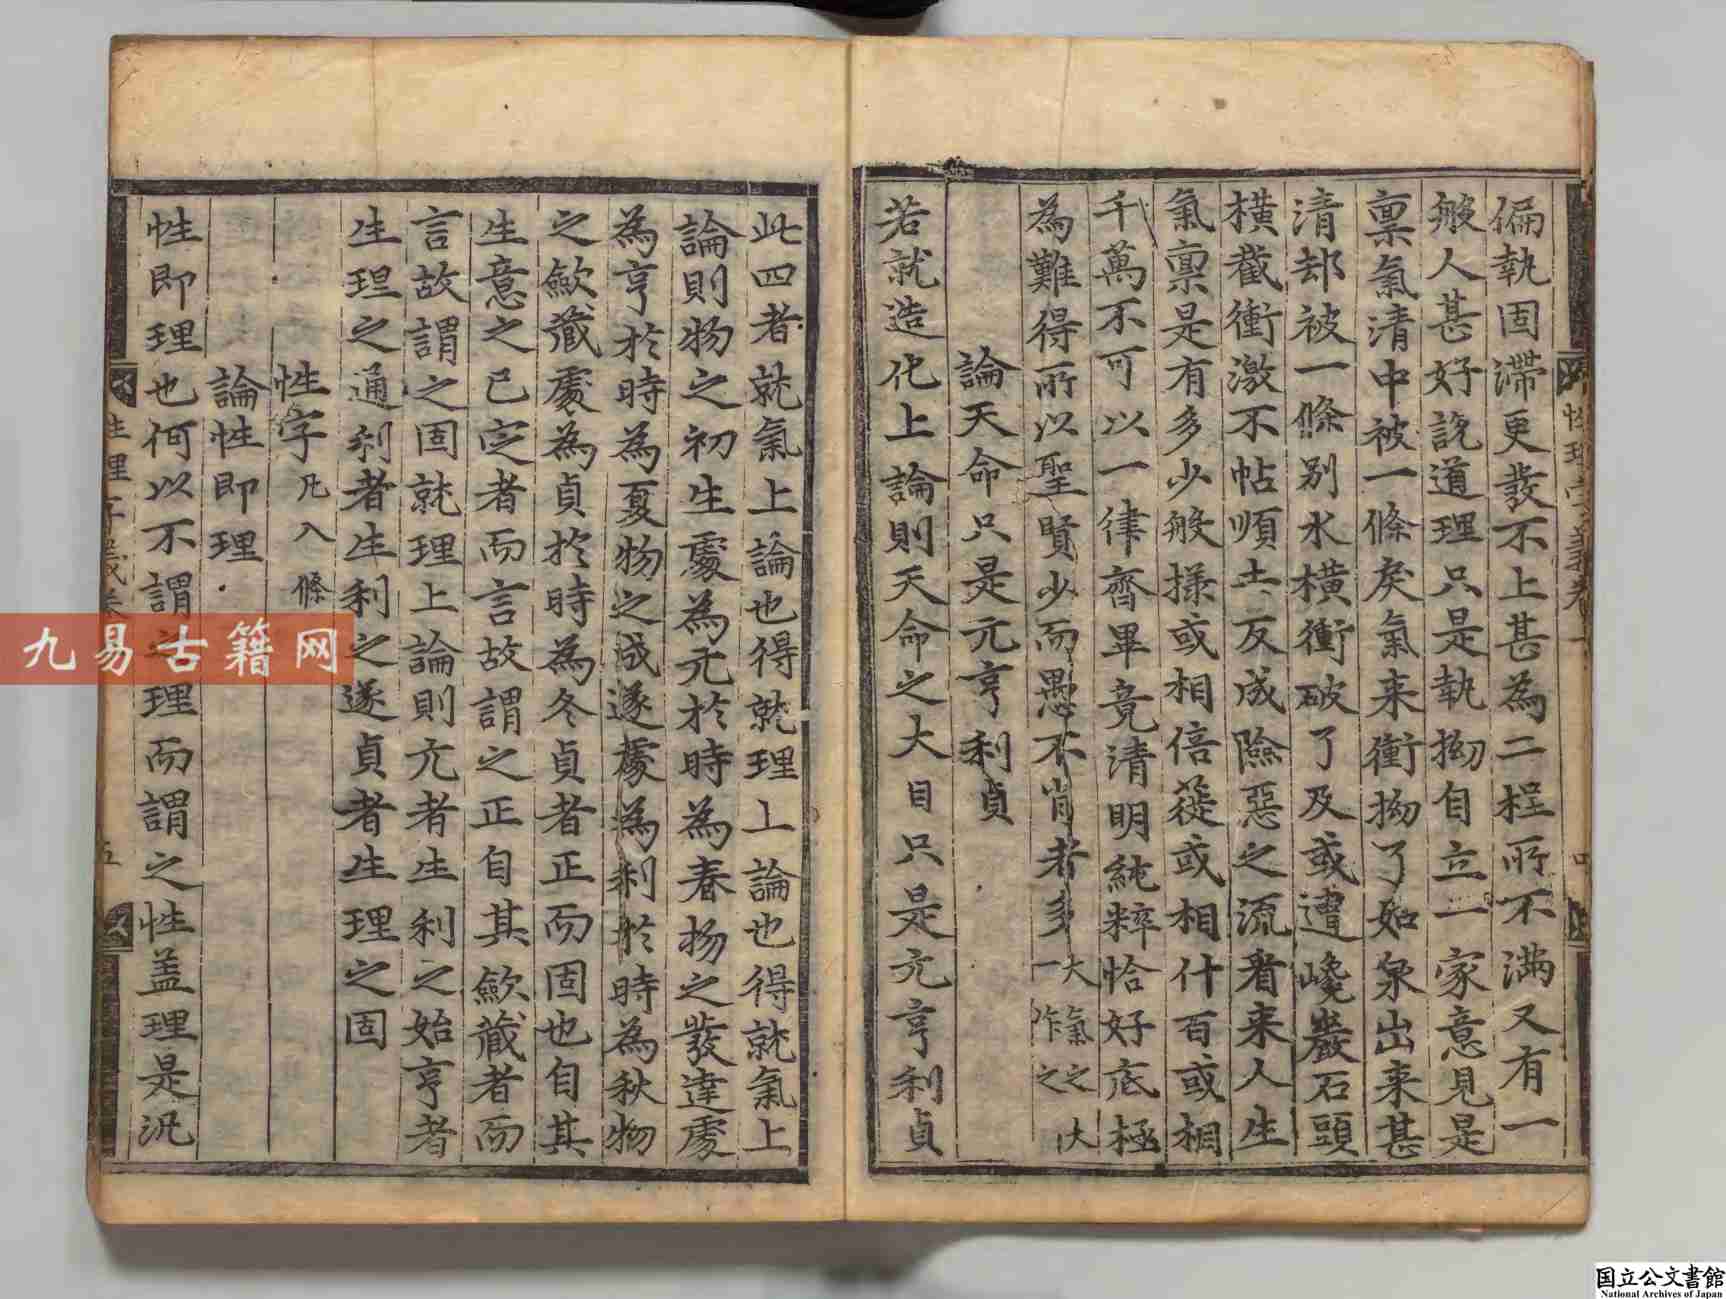 偏執固滯更發不上甚為二程所不滿又有一
般人甚好說道理只是執拗自立一家意見是
禀氣清中被一條戾氣来衝拗了如泉出来甚
清却被一條别水橫衝破了及或遭巉巖石頭
橫截衝激不帖順土反成險惡之流看来人生
氣禀是有多少般様或相倍蓰或相什百或相
千萬不可以一律齊畢竟清明純粹恰好底極
為難得所以聖賢少而愚不肖者多 一作 大氣之大
論天命只是元亨利貞
若就造化上論則天命之大目只是元亨利貞
性理字義卷一
此四者就氣上論也得就理上論也得就氣上
論則物之初生處為元於時為春物之發達處
為亨於時為夏物之成遂處為利於時為秋物
之歛藏處為貞於時為冬貞者正而固也自其
生意之已定者而言故謂之正自其歛藏者而
言故謂之固就理上論則元者生利之始亨者
生理之通利者生利之遂貞者生理之固
性字 凡八條
論性即理
性即理也何以不謂之理而謂之性盖理是汎
性理字義卷
五
九易古籍网
国立公文書館
National Archives of Japan